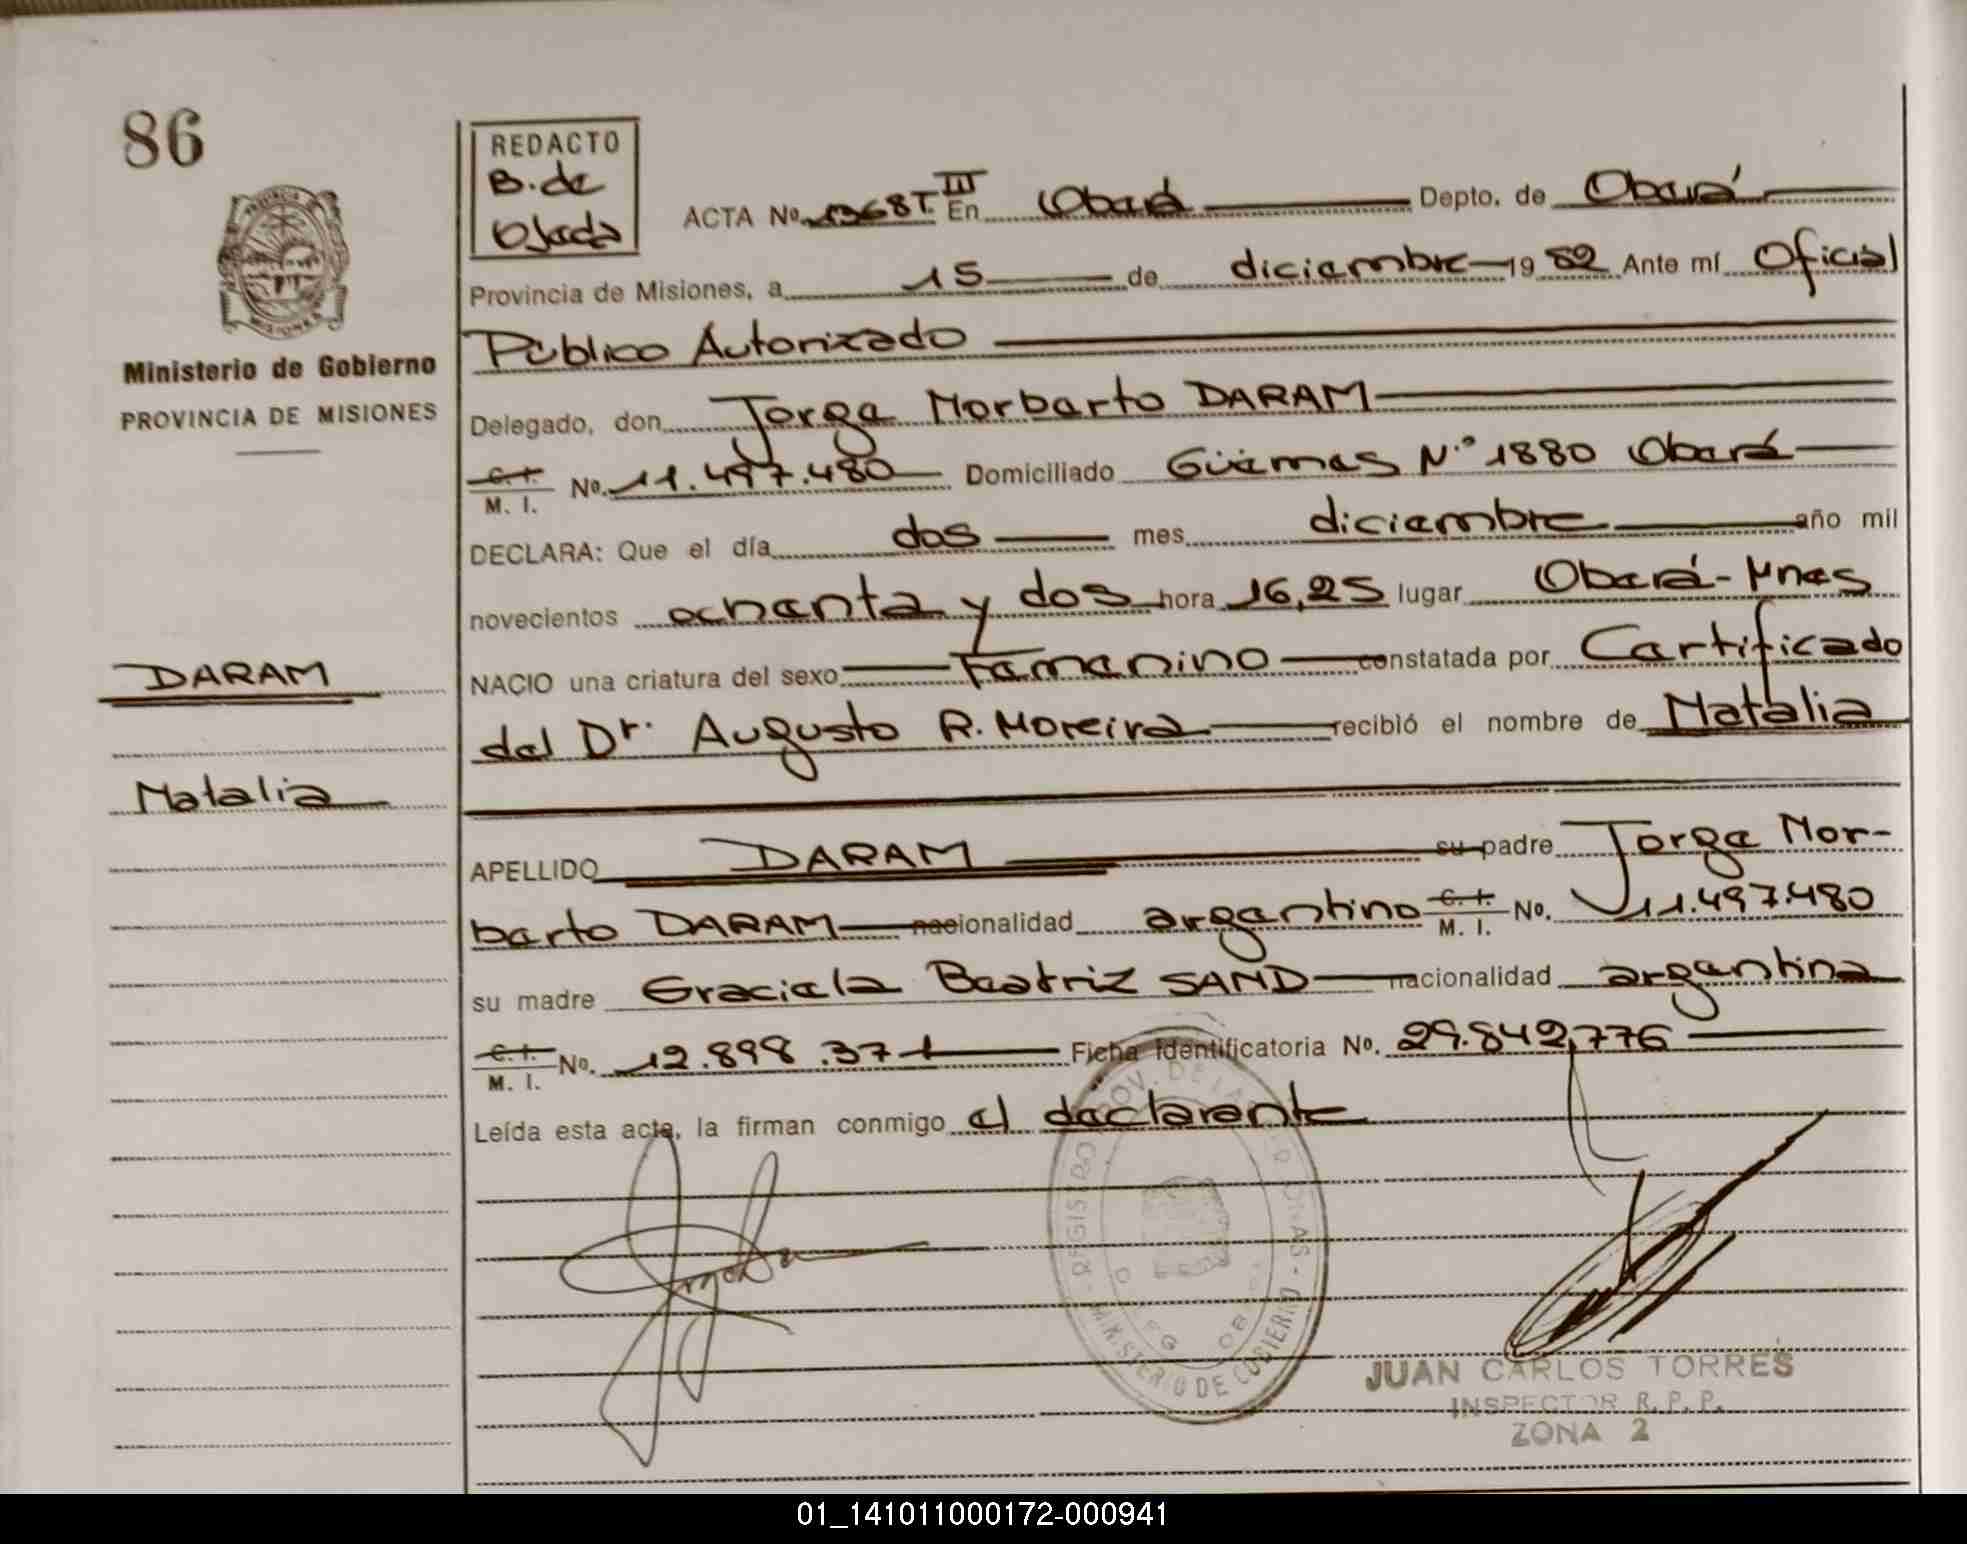 86
REDACTO
B. de
Ojeda
ACTA No. 1368 T. III En Oberá Depto. de Oberá
Provincia de Misiones, a 15 de diciembre 19 82 Ante mí Oficial
Público Autorizado
Ministerio de Gobierno
PROVINCIA DE MISIONES
Delegado, don Jorge Norberto DARAM
C. I.
M. I. No. 11.497.480 Domiciliado Güemes N.° 1880 Oberá
DECLARA: Que el día dos mes diciembre año mil
novecientos ochenta y dos hora 16,25 lugar Oberá-Mnes
NACIO una criatura del sexo Femenino constatada por Certificado
del Dr. Augusto R. Moreira recibió el nombre de Natalia
DARAM
Natalia
APELLIDO DARAM su padre Jorge Nor-
berto DARAM nacionalidad argentino C. I. M. I. No. 11.497.480
su madre Graciela Beatriz SAND nacionalidad argentina
C. I.
M. I. No. 12.898.371 Ficha Identificatoria No. 29.842,776
Leída esta acta, la firman conmigo el declarente
REGISTRO PROV. DE LAS PERSONAS - MINISTERIO DE GOBIERNO
JUAN CARLOS TORRES
INSPECTOR R. P. P.
ZONA 2
01_141011000172-000941